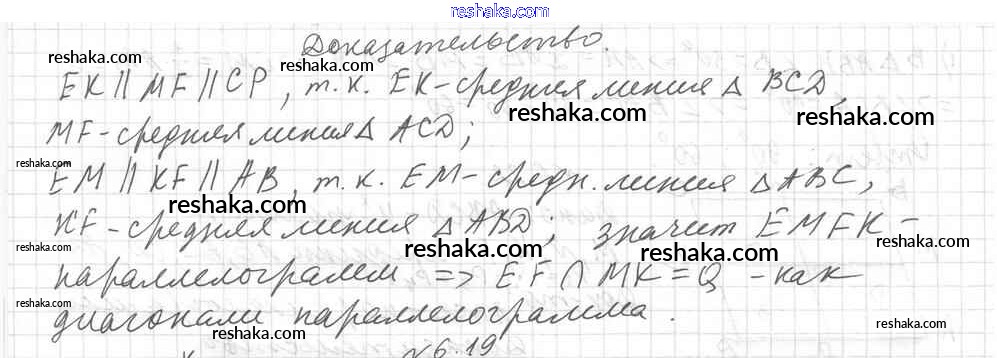 reshaka.com
Доказательство.
reshaka.com
reshaka.com
EK || MF || CP, т.к. EK-средняя линия Δ BCD,
reshaka.com
reshaka.com
MF-средняя линия Δ ACD;
reshaka.com
EM || KF || AB, т.к. EM-средн. линия Δ ABC,
reshaka.com
reshaka.com
KF-средняя линия Δ ABD; значит EMFK-
reshaka.com
reshaka.com
reshaka.com
параллелограмм => EF ∩ MK = Q - как
диагонали параллелограмма.
reshaka.com
reshaka.com
№6.19